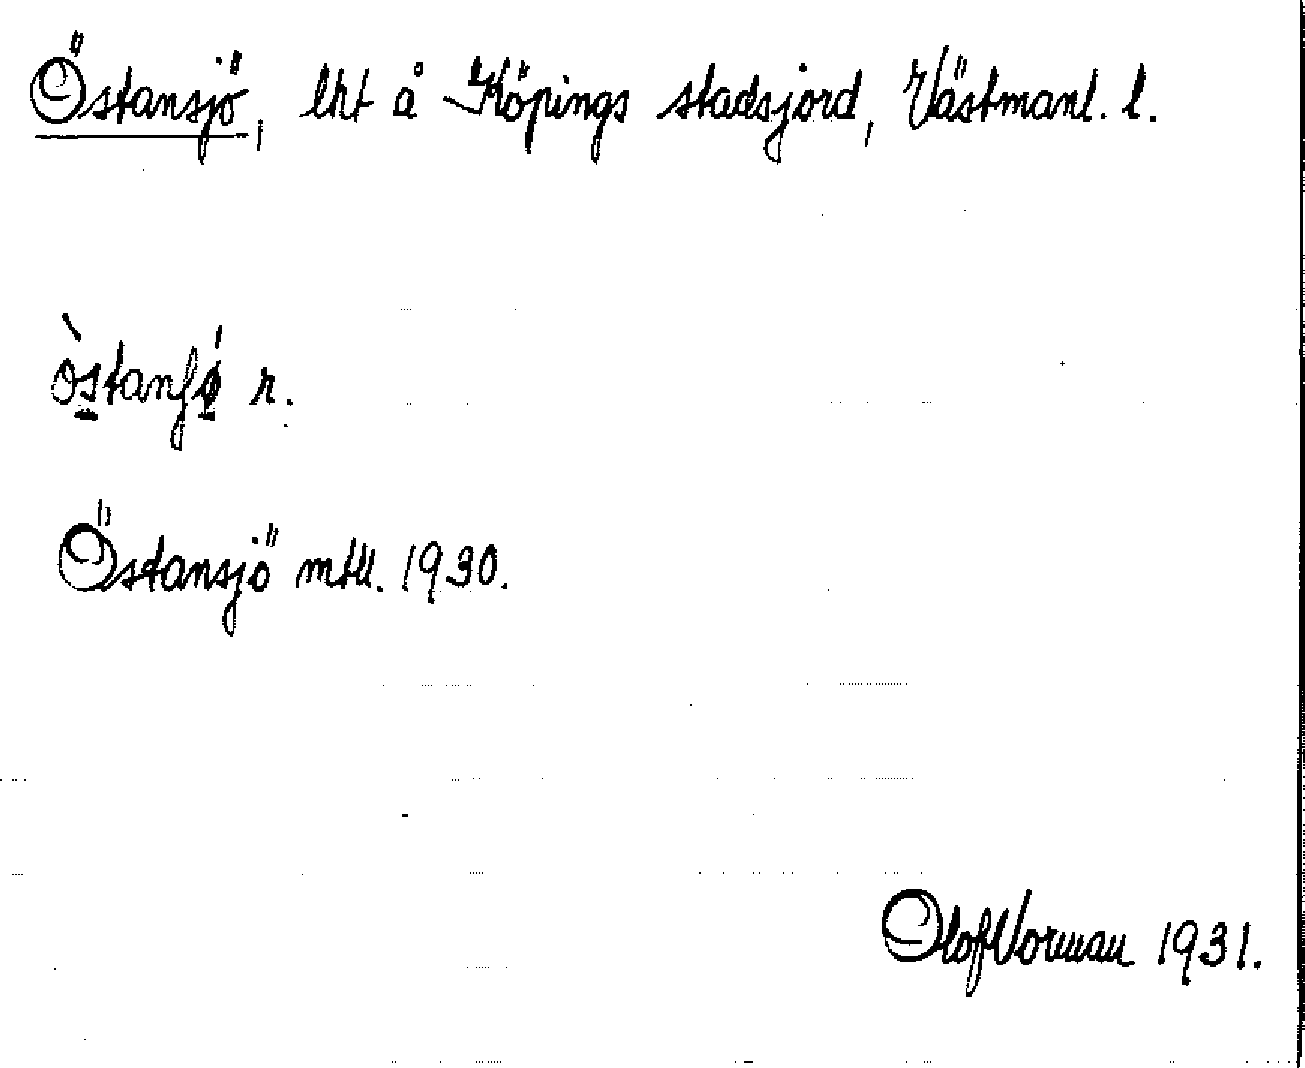 Östansjö, lht å Köpings stadsjord, Västmanl. l.
òstanʃǿ r.
Östansjö mtll. 1930.
Olof Vorman 1931.